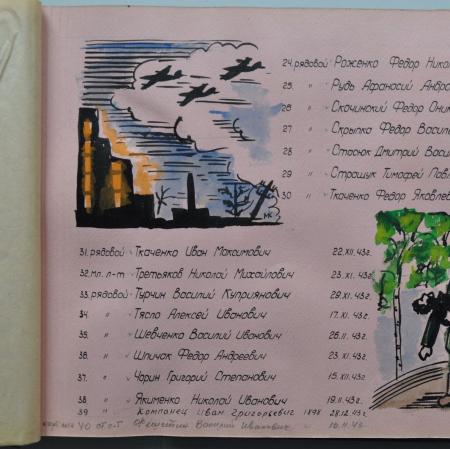 24. рядовой Роженко Федор Нико
25. " Рудь Афанасий Андр
26 " Скачинский Федор Они
27 " Скрыпка Федор Васил
28 " Стасюк Дмитрий Васи
29 " Стращук Тимофей Пав
30 " Ткаченко Федор Яковлев
МК
31. рядовой Ткаченко Иван Максимович 22.XII.43г.
32. мл. л-т Третьяков Николай Михайлович 23.XI.43г.
33. рядовой Турчин Василий Куприянович 29.XI.43г.
34. " Тясло Алексей Иванович 17.XI.43г.
35. " Шевченко Василий Иванович 26.11.43г.
36. " Шпичак Федор Андреевич 23.XI.43г.
37. " Чорин Григорий Степанович 15.XII.43г.
38 " Якименко Николай Иванович 19.11.43г.
39 " Компанец Иван Григорьевич 1898 28.12.43г.
40 Василий Иванович 16.11.43.